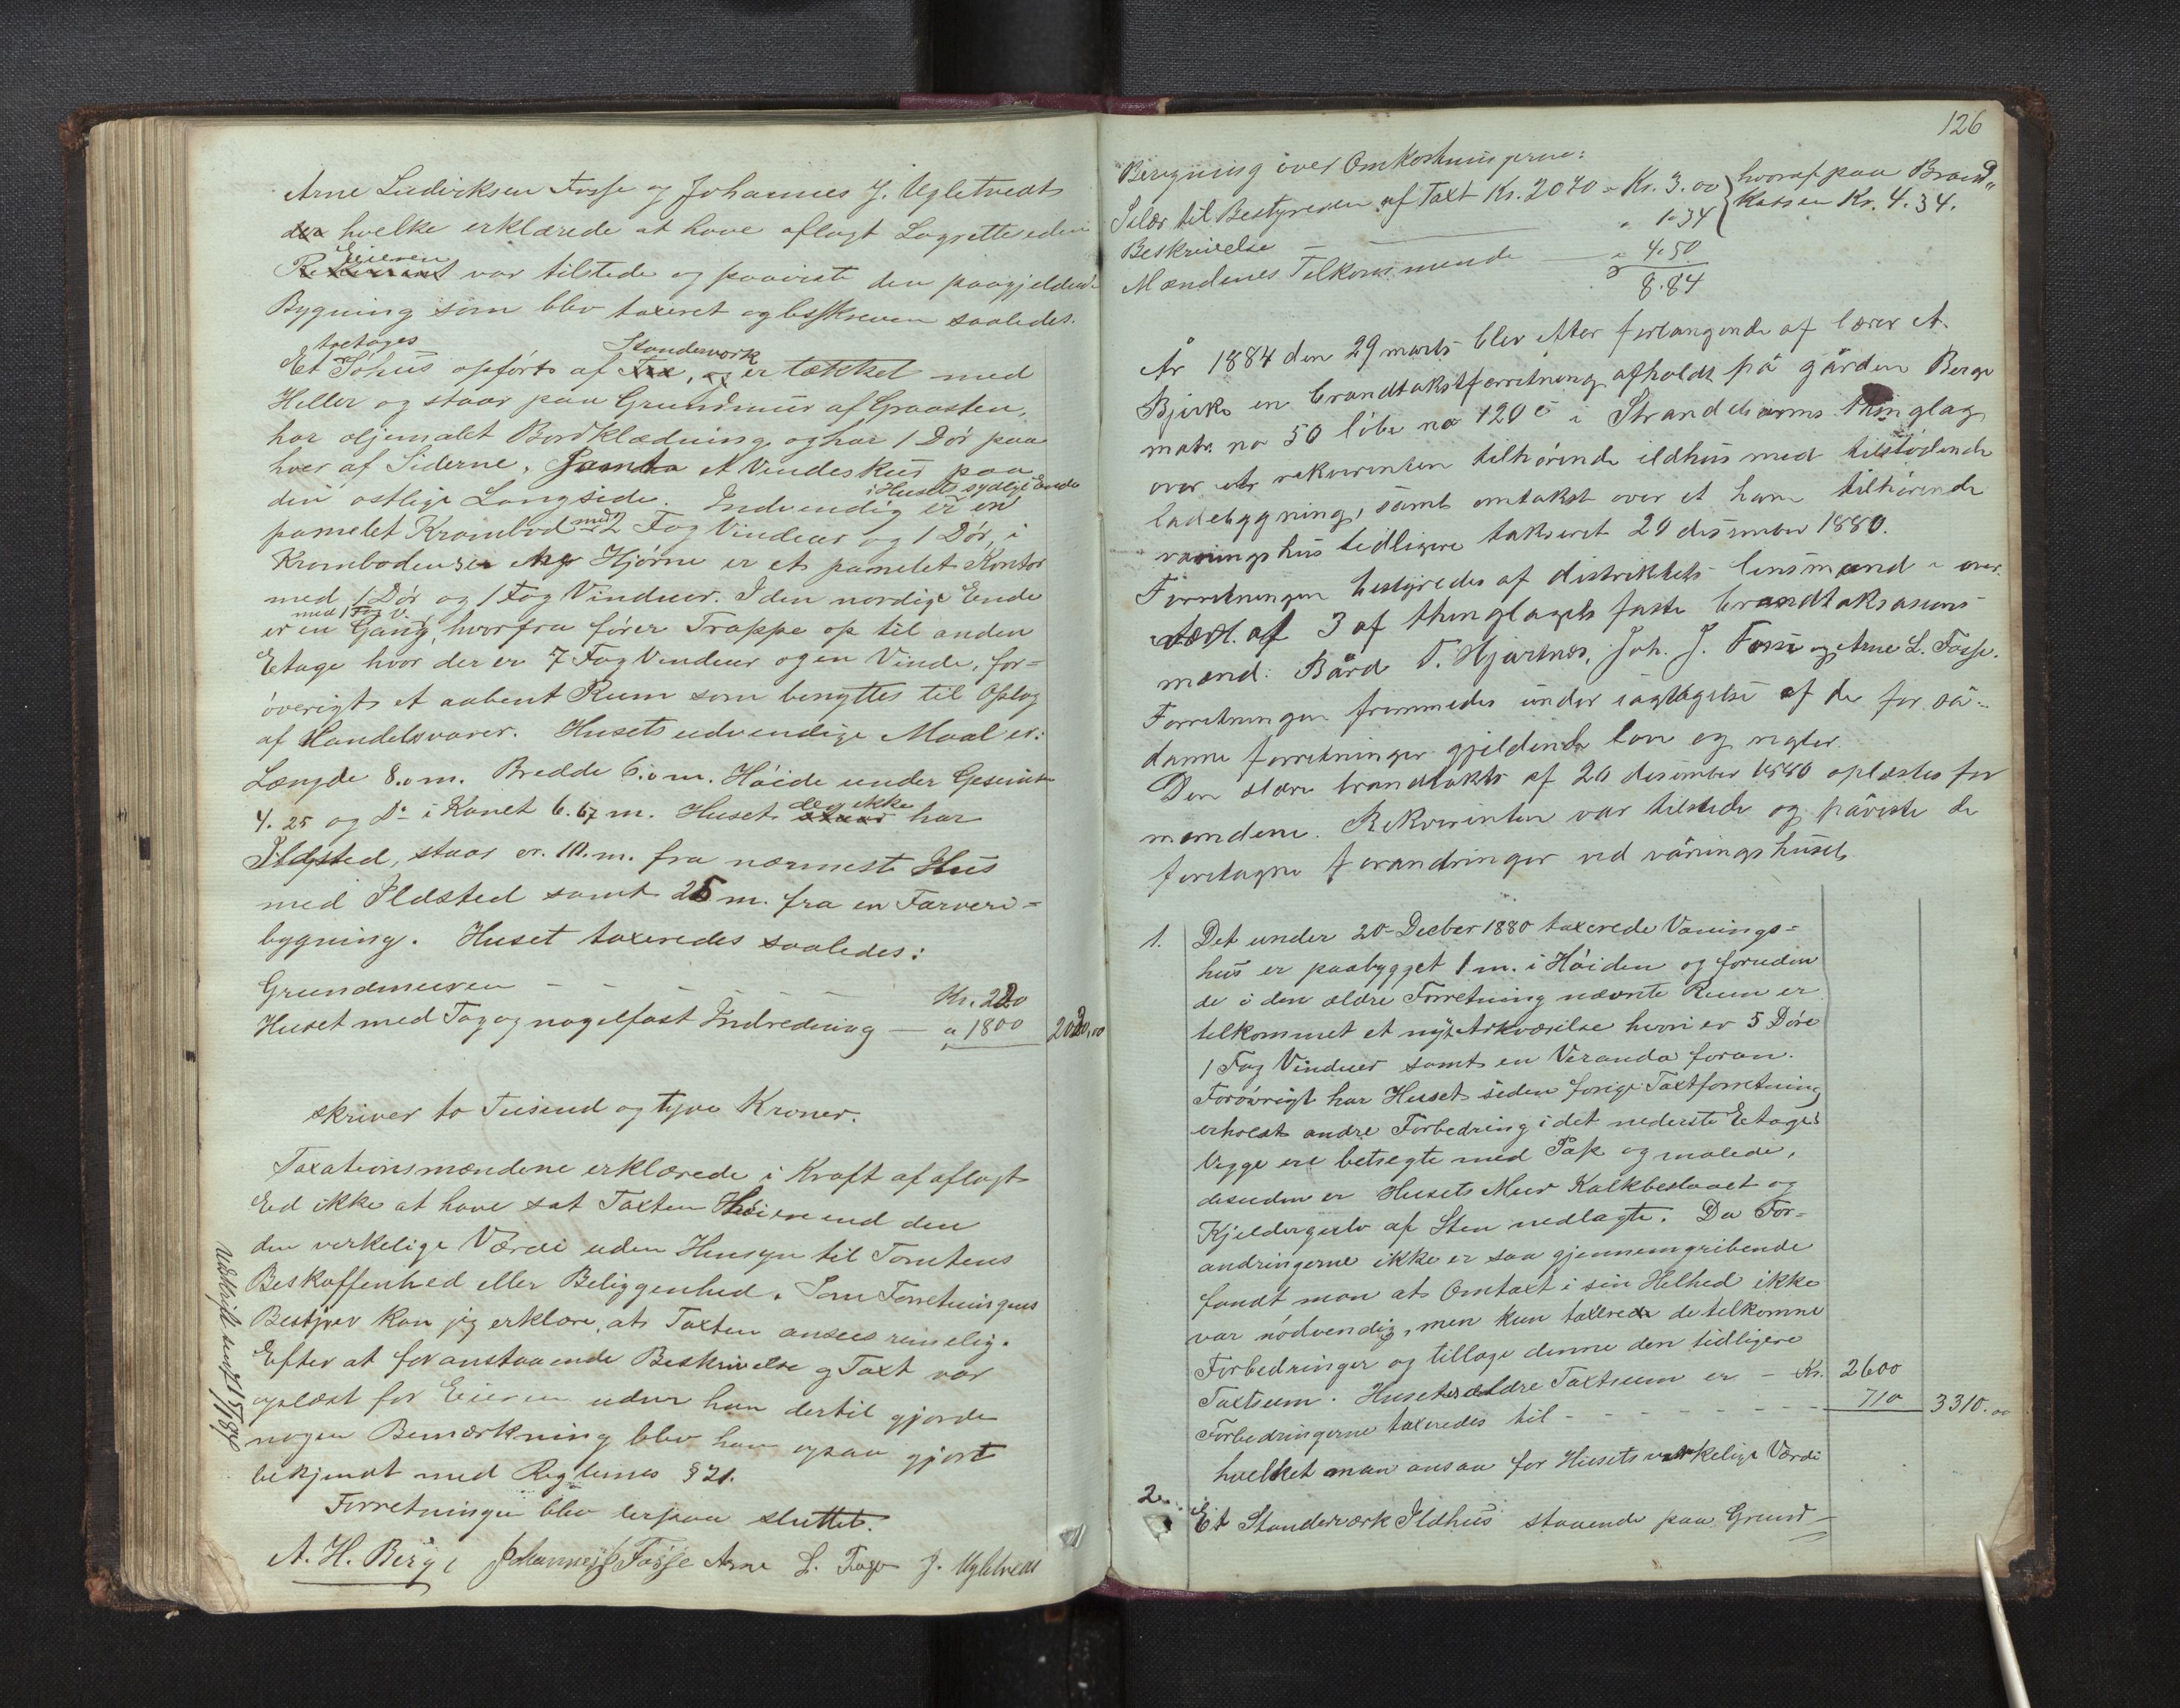 Arne Ludviksen Fosse og Johannes J. Ugletvedt
hvelke erklærede at have aflagt Lagretteseden
Eieren
Rekvirent var tilstede og paaviste den paagjeldende
Bygning som blev taxeret og beskreven saaledes.
toetages Standerværk
Et Söhus opført af Træ, og er tækket med
Heller og staar paa Grundmur af Graasten,
har oljemalet Bordklædning og har 1 Dör paa
hver af Siderne, samt et Vindeskur paa
i Husets sydlige Ende
den ostlige Langside. Indvendig er en
pamelet Krambod med 2 Fag Vinduer og 1 Dör, i
Krambodens Hjörne er et pamelet Kontor
med 1 Dör og 1 Fag Vinduer. I den nordige Ende
med 1 Fag V.
er en Gang, hvorfra fører Trappe op til anden
Etage hvor der er 7 Fag Vinduer og en Vinde, for=
övrigt et aabent Rum som benyttes til Oplag
af Handelsvarer. Husets udvendige Maal er:
Længde 8.0 m. Bredde 6.0 m. Höide under Gesimts
4.25 og Do i Rönet 6.67 m. Huset har
dog ikke
Ildsted, staar cr. 10. m. fra nærmeste Hus
med Ildsted samt 25 m. fra en Farveri=
bygning. Huset taxeredes saaledes:
Grundmuren - - - - - Kr. 220
Huset med Tag og nagelfast Indredning — " 1800 2020,00
skriver to Tusind og tyve Kroner.
Taxationsmændene erklærede i Kraft af aflagt
Ed ikke at have sat Taxten Höiere end den
den verkelige Værdi uden Hensyn til Tomtens
Beskaffenhed eller Beliggenhed. Som Forretningens
Bestyrer kan jeg erklære, at Taxten ansees rimelig.
Efter at foranstaaende Beskrivelse og Taxt var
oplæst for Eieren uden han dertil gjorde
nogen Bemærkning blev han ogsaa gjort
bekjendt med Reglernes § 21.
Forretningen blev derpaa sluttet.
A. H. Berge Johannes J Fosse Arne L. Fosse J. Ugletvedt
126
Beregning over Omkostningerne:
Salær til Bestyreren af Taxt Kr. 2020 = Kr. 3.00 } hvoraf paa Brand„
Beskrivelse — — " 1.34 } kassen Kr. 4.34.
Mændenes Tilkommende — " 4.50
8.84
År 1884 den 29 marts blev efter forlangende af lærer A.
Bjerke en brandtakstforretning afholdt på gården Berge
matr. no 50 löbe no 120 c i Strandebarms thinglag
over et rekvirenten tilhørende ildhus med tilstødende
ladebygning, samt omtakst over et ham tilhørende
vaaningshus tidligere takseret 20 desember 1880.
Forretningen bestyredes af distriktets lensmand i over
værl. af 3 af thinglagets faste brandtaksations
mænd: Bård T. Hjartnes, Joh. J. Fosse og Arne L. Fosse.
Forretningen fremmedes under iagtagelse af de for så-
danne forretninger gjeldende love og regler.
Den ældre brandtakst af 20 desember 1880 oplæstes for
mændene. Rekvirenten var tilstede og påviste de
foretagne forandringer ved våningshuset
1. Det under 20 Decber 1880 taxerede Vaanings=
hus er paabygget 1 m. i Höiden og foruden
de i den ældre Forretning nævnte Rum er
tilkommet et nyt Arkværelse hvori er 5 Döre
1 Fag Vinduer samt en Veranda foran.
Forövrigt har Huset siden forige Taxtforretning
erholdt andre Forbedring i det nederste Etages
Vægge ere betregte med Pap og malede,
desuden er Husets Mur Kalkbeslaaet og
Kjeldergulv af Sten nedlagte. Da For=
andringerne ikke er saa gjennemgribende
fandt man at Omtaxt i sin Helhed ikke
var nödvendig, men kun taxere de tilkomne
Forbedringer og tillage denne den tidligere
Taxtsum. Husets ældre Taxtsum er — Kr. 2600
Forbedringerne taxeredes til - - - - - - 710 3310.00
hvelket man ansaa for Husets verkelige Værdi
2. Et Standerværk Ildhus staaende paa Grund-